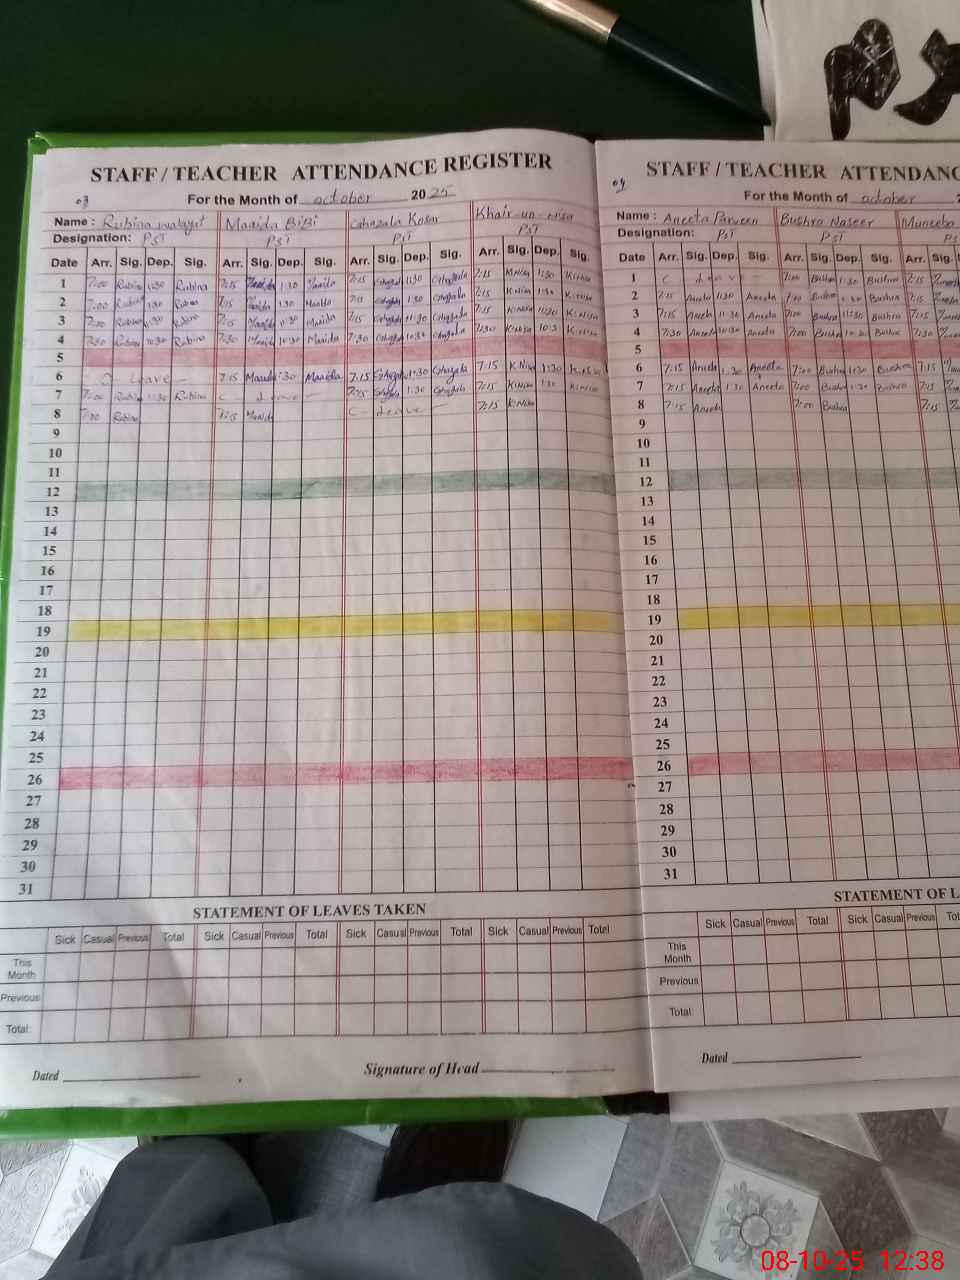 STAFF / TEACHER ATTENDANCE REGISTER
03
For the Month of october 2025
Name : Rubina Manida Bibi Ghazala Kosar Khair-un-Nisa
Designation: PST PST PST PST
Date Arr. Sig. Dep. Sig. Arr. Sig. Dep. Sig. Arr. Sig. Dep. Sig. Arr. Sig. Dep. Sig.
1 7:00 Rubina 1:30 Rubina 7:15 1:30 7:15 1:30 7:15 K.Nisa 1:30 K.Nisa
2 7:00 Rubina 1:30 Rubina 7:15 1:30 7:15 1:30 Ghazala 7:15 K.Nisa 1:30 K.Nisa
3 7:00 Rubina 11:30 Rubina 7:15 11:30 7:15 11:30 Ghazala 7:15 K.Nisa 11:30 K.Nisa
4 7:30 Rubina 10:30 Rubina 7:30 10:30 7:30 10:30 Ghazala 7:30 K.Nisa 10:30 K.Nisa
5
6 Leave 7:15 1:30 7:15 1:30 Ghazala 7:15 K.Nisa 1:30
7 7:00 Rubina 1:30 Rubina C - leave - 7:15 1:30 Ghazala 7:15 K.Nisa 1:30 K.Nisa
8 7:00 Rubina 7:15 C - leave - 7:15 K.Nisa
9
10
11
12
13
14
15
16
17
18
19
20
21
22
23
24
25
26
27
28
29
30
31
STATEMENT OF LEAVES TAKEN
Sick Casual Previous Total Sick Casual Previous Total Sick Casual Previous Total Sick Casual Previous Total
This Month
Previous
Total:
Dated Signature of Head
STAFF / TEACHER ATTENDANC
04
For the Month of october
Name : Aneeta Parveen Bushra Naseer Muneeba
Designation: PST PST PS
Date Arr. Sig. Dep. Sig. Arr. Sig. Dep. Sig. Arr. Sig.
1 C - leave - 7:00 Bushra 1:30 Bushra 7:15
2 7:15 Aneeta 1:30 Aneeta 7:00 Bushra 1:30 Bushra 7:15
3 7:15 Aneeta 11:30 Aneeta 7:00 Bushra 11:30 Bushra 7:15
4 7:30 Aneeta 10:30 Aneeta 7:00 Bushra 10:30 Bushra 7:30
5
6 7:15 Aneeta 1:30 Aneeta 7:00 Bushra 1:30 Bushra 7:15
7 7:15 Aneeta 1:30 Aneeta 7:00 Bushra 1:30 Bushra 7:15
8 7:15 Aneeta 7:00 Bushra 7:15
9
10
11
12
13
14
15
16
17
18
19
20
21
22
23
24
25
26
27
28
29
30
31
STATEMENT OF L
Sick Casual Previous Total Sick Casual Previous Total
This Month
Previous
Total:
Dated
08-10-25 12:38